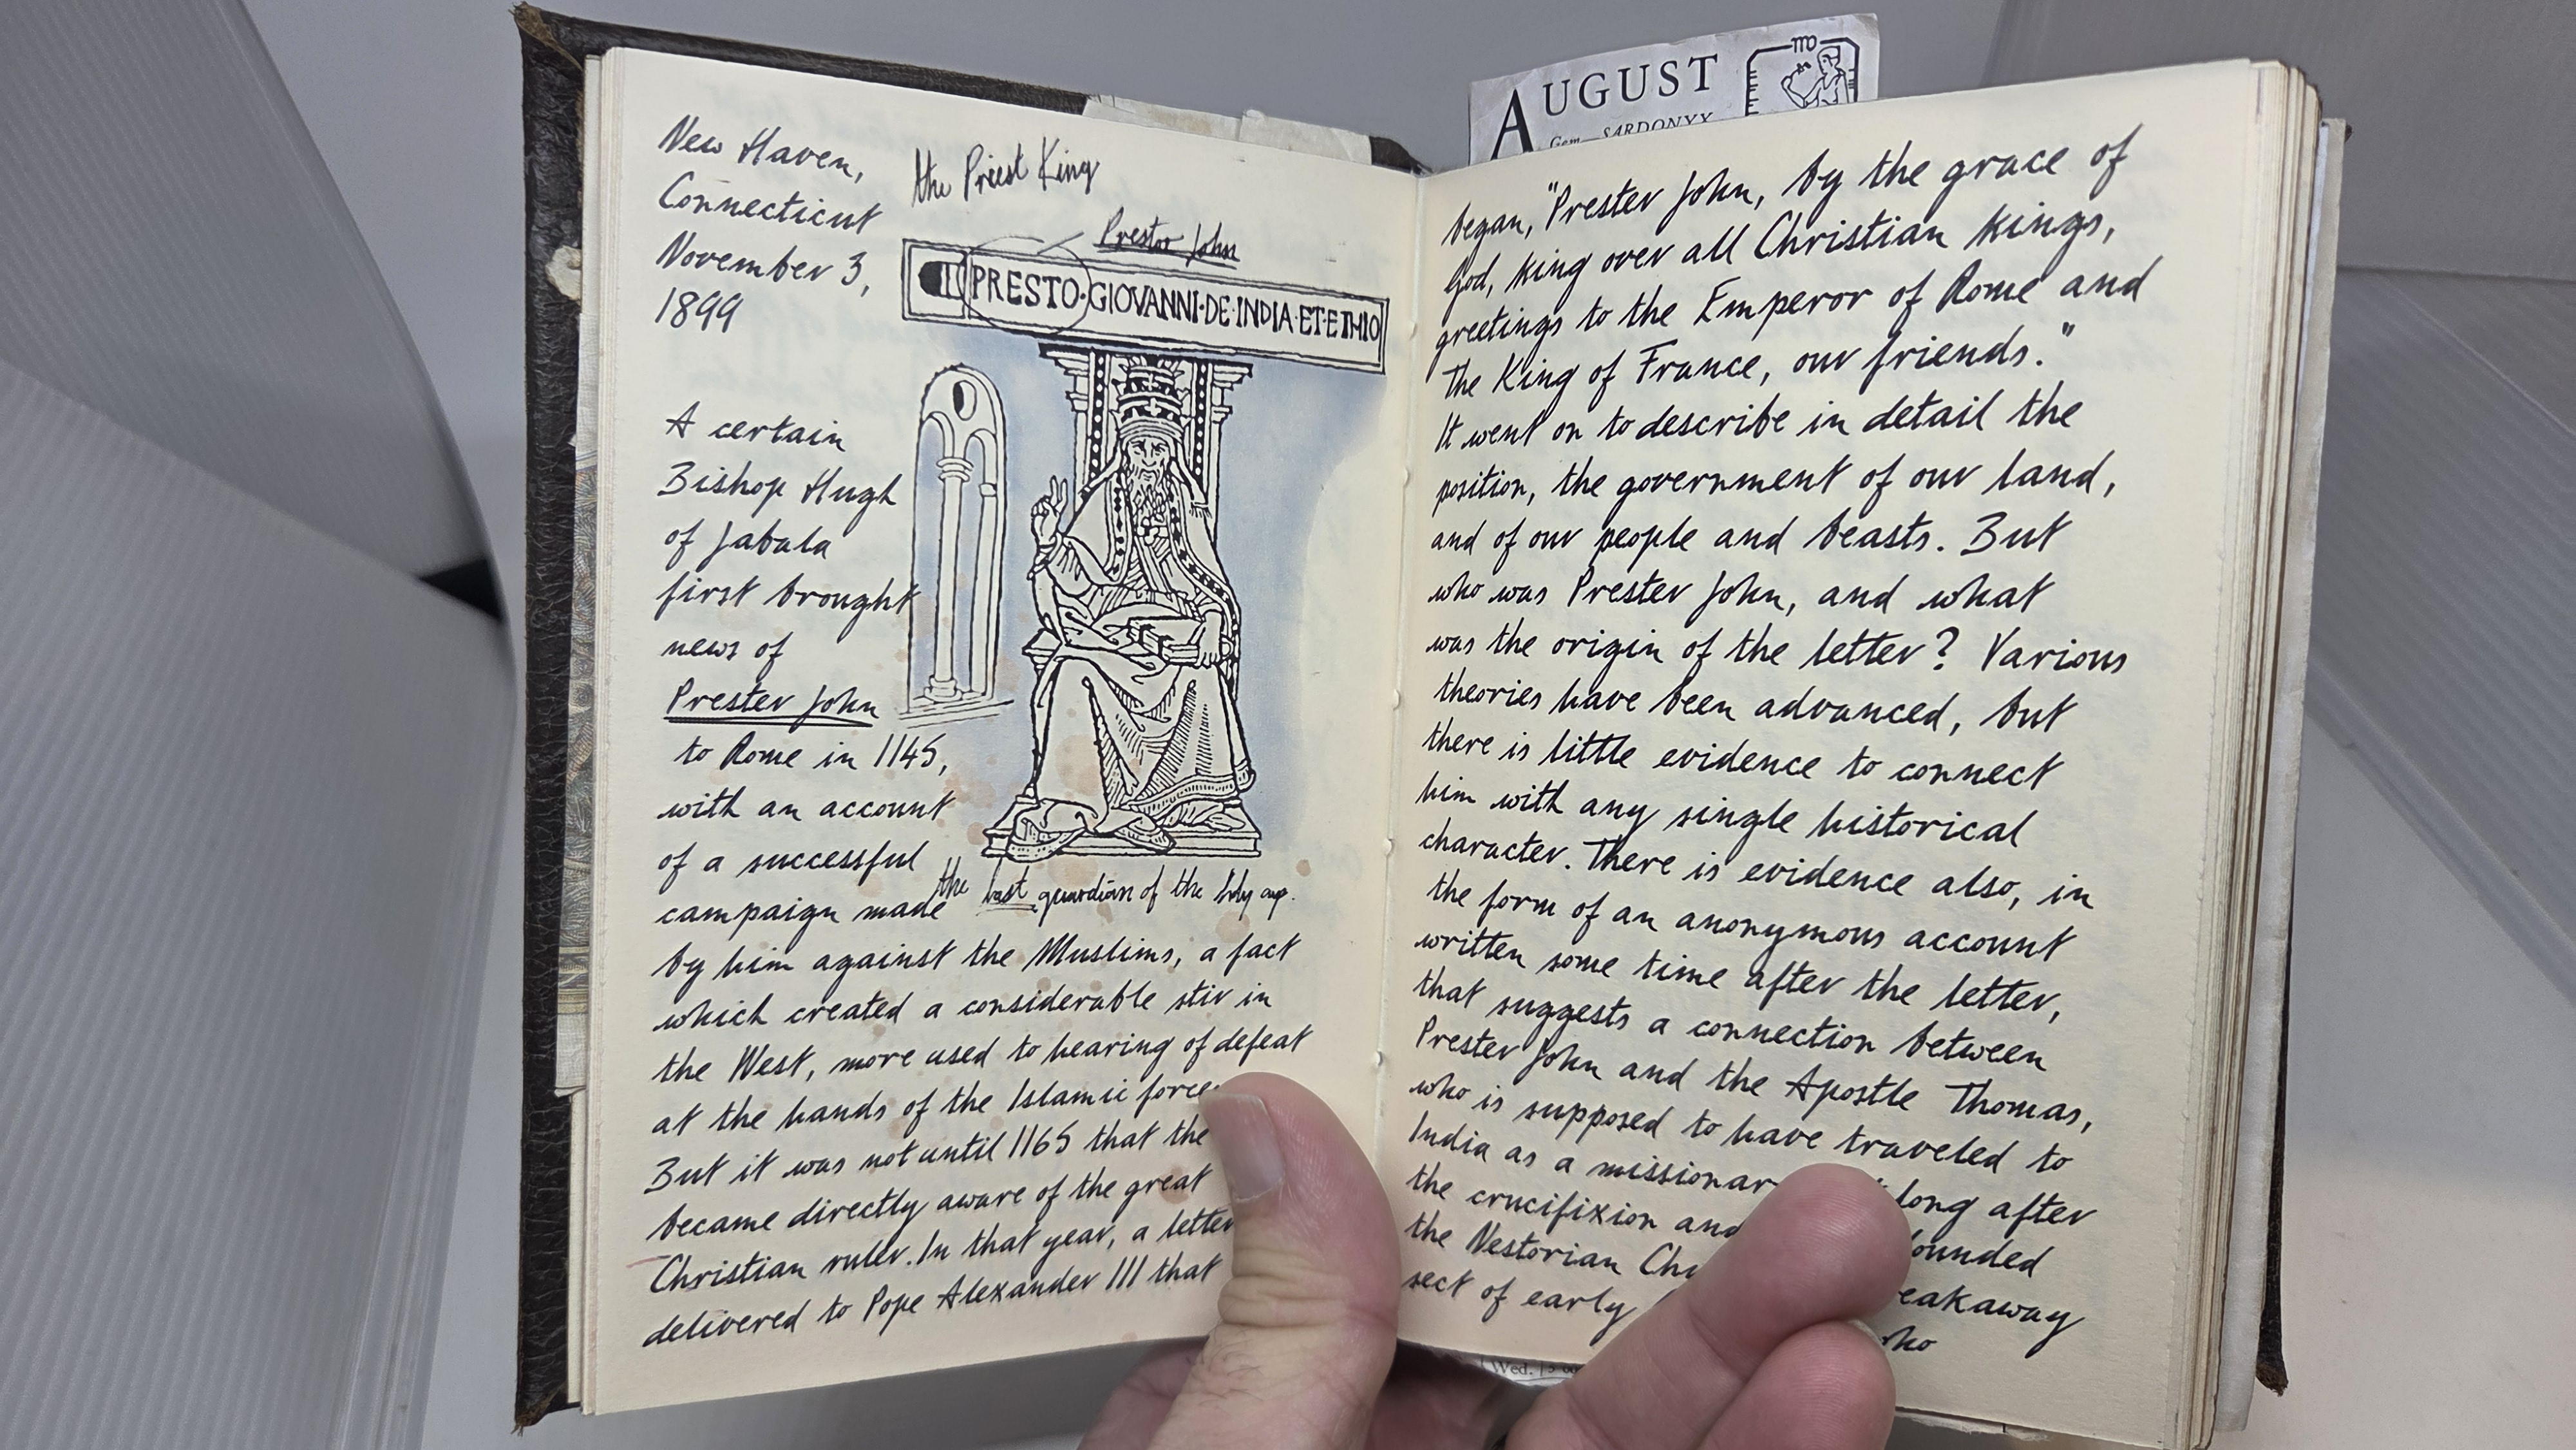 AUGUST
Gem—SARDONYX
New Haven,
Connecticut
November 3,
1899
the Priest King
Prester John
PRESTO·GIOVANNI·DE·INDIA·ET·ETHIO
A certain
Bishop Hugh
of Jabala
first brought
news of
Prester John
to Rome in 1145,
with an account
of a successful
campaign made
the last guardian of the holy cup.
by him against the Muslims, a fact
which created a considerable stir in
the West, more used to hearing of defeat
at the hands of the Islamic
But it was not until 1165 that the
became directly aware of the great
Christian ruler. In that year, a letter
delivered to Pope Alexander III that
began, "Prester John, by the grace of
God, king over all Christian kings,
greetings to the Emperor of Rome and
the King of France, our friends."
It went on to describe in detail the
position, the government of our land,
and of our people and beasts. But
who was Prester John, and what
was the origin of the letter? Various
theories have been advanced, but
there is little evidence to connect
him with any single historical
character. There is evidence also, in
the form of an anonymous account
written some time after the letter,
that suggests a connection between
Prester John and the Apostle Thomas,
who is supposed to have traveled to
India as a long after
the crucifixion and
the Nestorian
sect of early
(Wed.